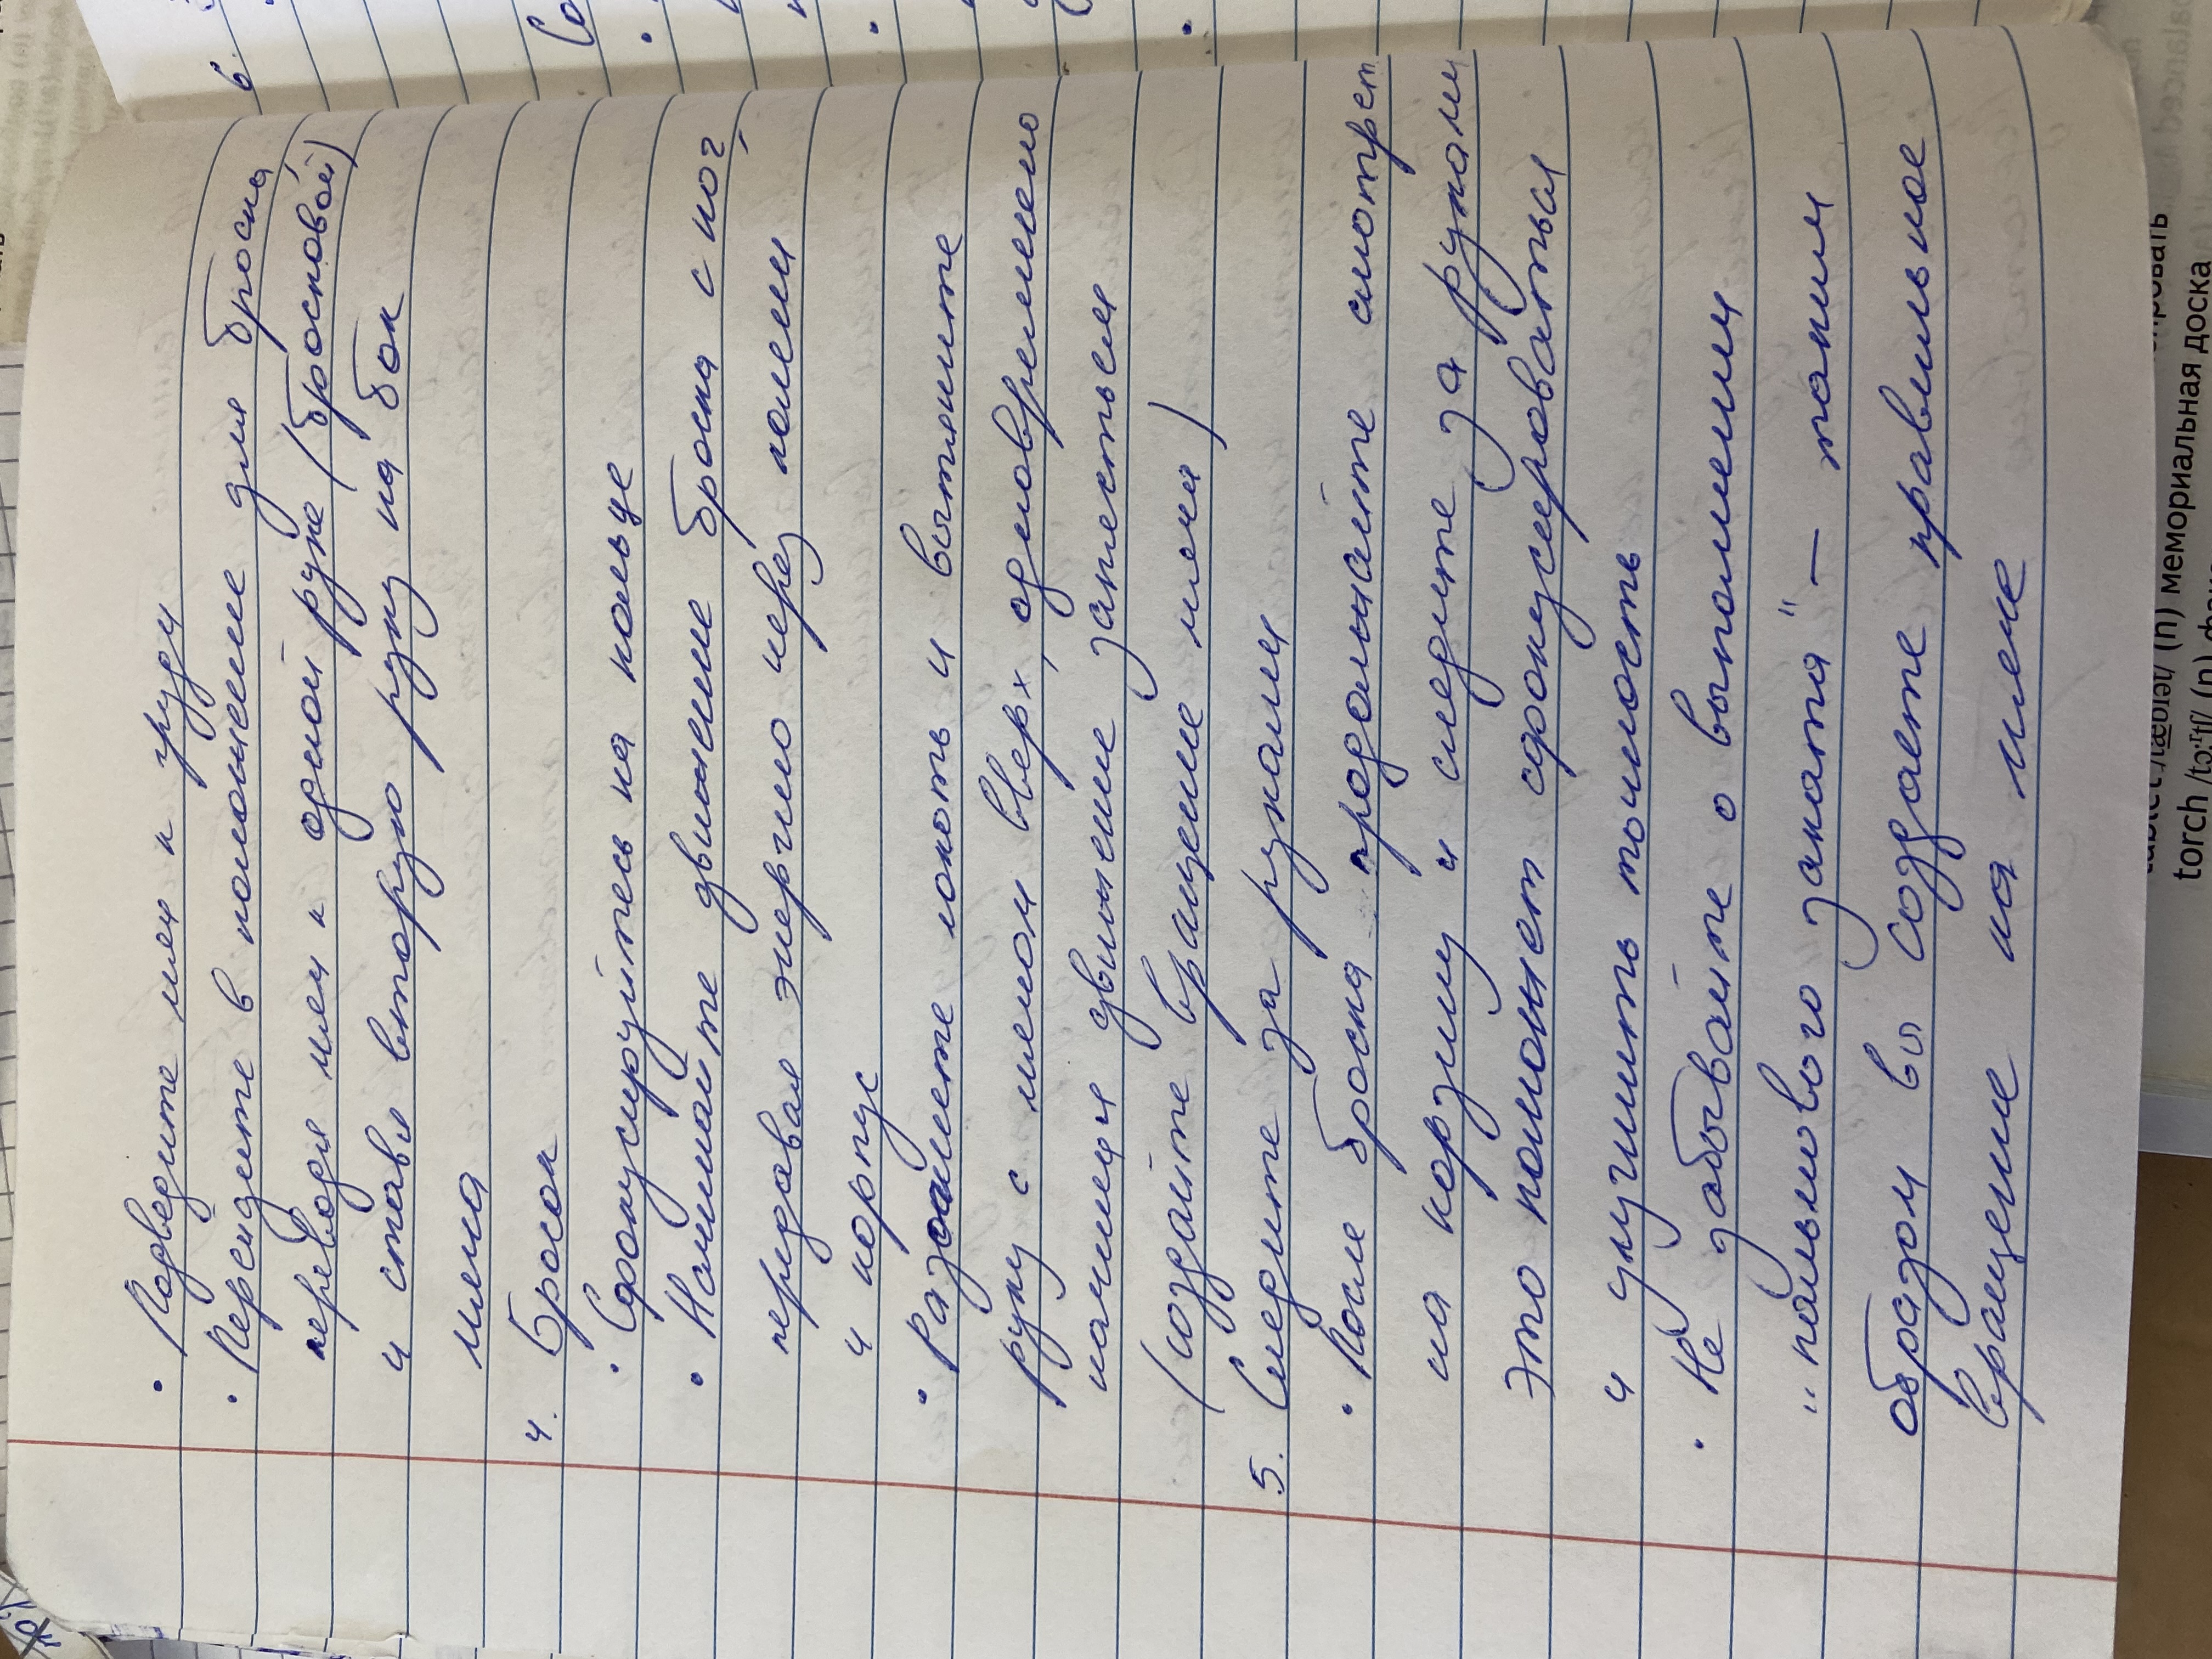 • Подведите мяч к груди
• Перейдите в положение для броска
переводя мяч к одной руке (бросковой)
и ставя вторую руку на бок
мяча
4. Бросок
• Сфокусируйтесь на кольце
• Начинайте движение броска с ног,
передавая энергию через колени
и корпус
• Разогните локоть и вытяните
руку с мячом вверх, одновременно
начиная движение запястьем
(создайте вращение мяча)
5. Следите за руками
• После броска продолжайте смотреть
на корзину и следите за руками
это поможет сфокусироваться
и улучшить точность
• Не забывайте о выполнении
"пальцового заката" — таким
образом вы создаете правильное
вращение на мяче
6.
torch /tɔːrtʃ/ (n)
(n) мемориальная доска